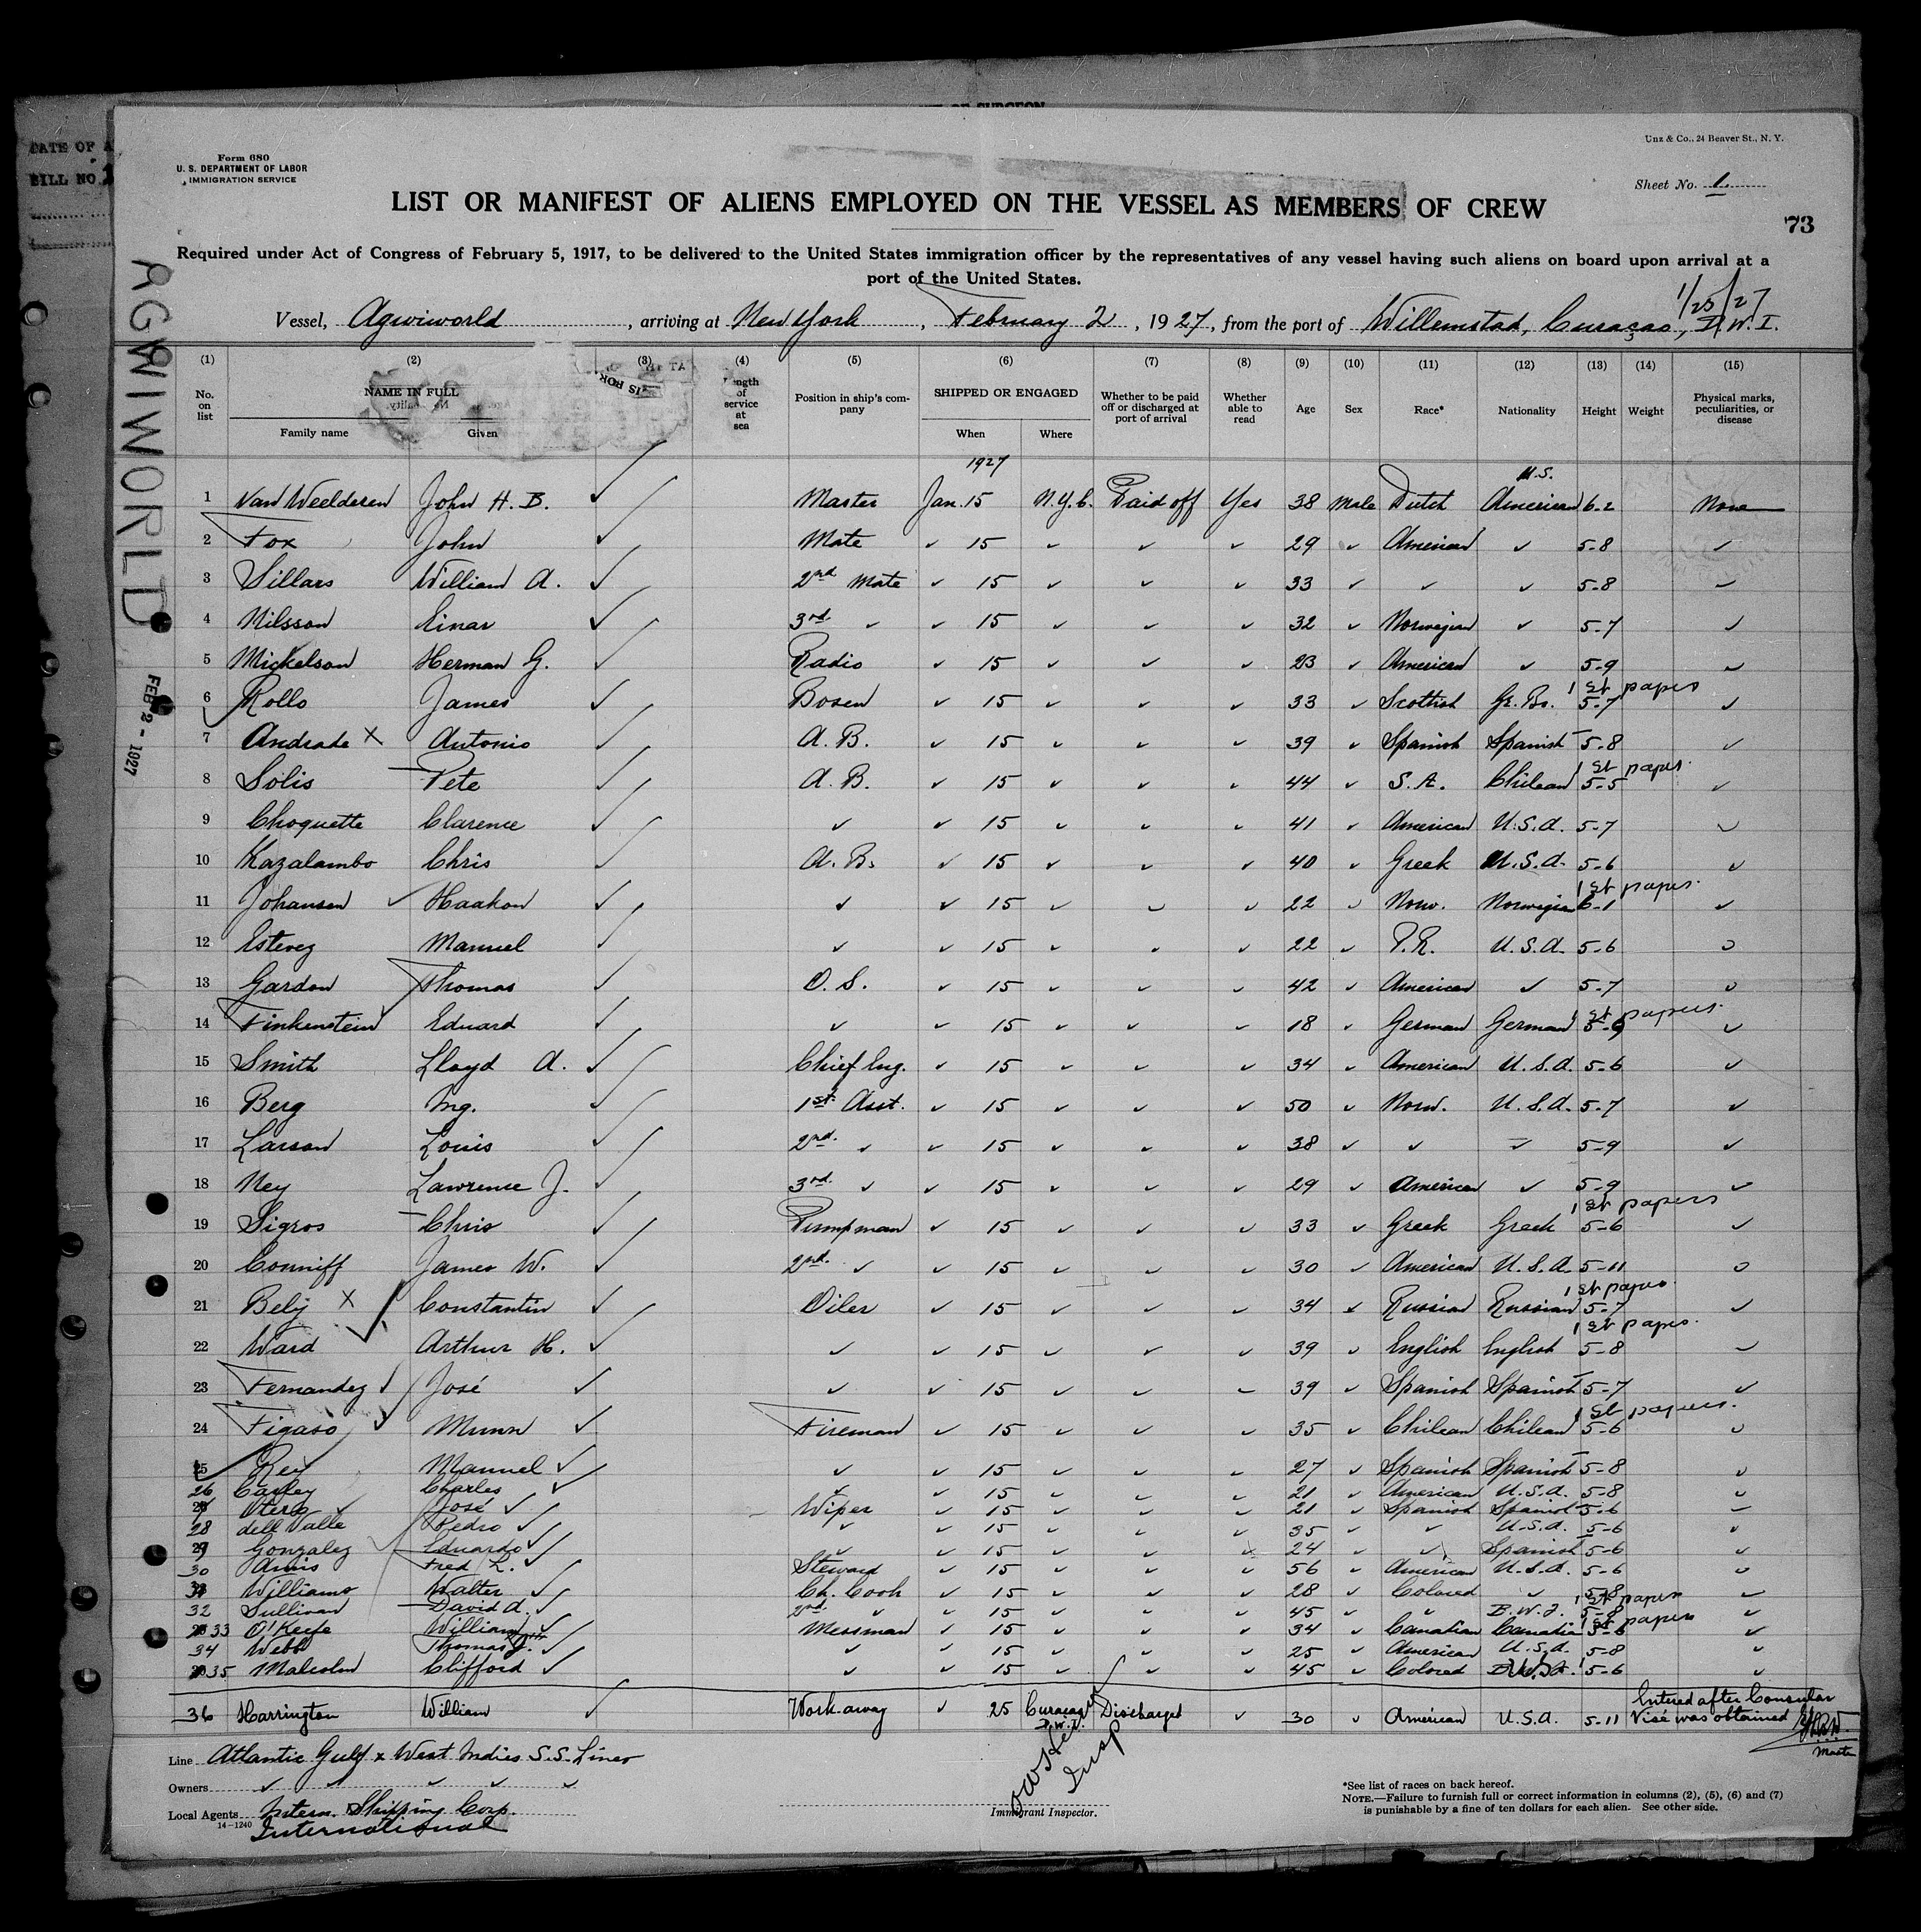 DATE OF A
BILL NO.
Form 680
U. S. DEPARTMENT OF LABOR
IMMIGRATION SERVICE
Unz & Co., 24 Beaver St., N. Y.
Sheet No. 1.
LIST OR MANIFEST OF ALIENS EMPLOYED ON THE VESSEL AS MEMBERS OF CREW
73
Required under Act of Congress of February 5, 1917, to be delivered to the United States immigration officer by the representatives of any vessel having such aliens on board upon arrival at a
port of the United States.
1/25/27
Vessel, Agwiworld, arriving at New York, February 2, 1927, from the port of Willemstad, Curaçao, D.W.I.
AGWIWORLD
FEB 2 - 1927
(1) (2) (3) (4) (5) (6) (7) (8) (9) (10) (11) (12) (13) (14) (15)
No. on list NAME IN FULL Family name Given Length of service at sea Position in ship's company SHIPPED OR ENGAGED When Where Whether to be paid off or discharged at port of arrival Whether able to read Age Sex Race* Nationality Height Weight Physical marks, peculiarities, or disease
1927 U.S.
1 Van Weelderen John H. B. ✓ Master Jan. 15 N.Y.C. Paid off Yes 38 Male Dutch American 6-2 None
2 Fox John ✓ Mate ✓ 15 ✓ ✓ ✓ 29 ✓ American ✓ 5-8 ✓
3 Sillars William A. ✓ 2nd Mate ✓ 15 ✓ ✓ ✓ 33 ✓ ✓ ✓ 5-8 ✓
4 Nilsson Einar ✓ 3rd ✓ ✓ 15 ✓ ✓ ✓ 32 ✓ Norwegian ✓ 5-7 ✓
5 Mickelson Herman G. ✓ Radio ✓ 15 ✓ ✓ ✓ 23 ✓ American ✓ 5-9 ✓
1st papers
6 Rollo James ✓ Bosen ✓ 15 ✓ ✓ ✓ 33 ✓ Scottish Gr. Br. 5-7 ✓
7 Andrade X Antonio ✓ A.B. ✓ 15 ✓ ✓ ✓ 39 ✓ Spanish Spanish 5-8 ✓
1st papers.
8 Solis Pete ✓ A.B. ✓ 15 ✓ ✓ ✓ 44 ✓ S.A. Chilean 5-5 ✓
9 Choquette Clarence ✓ ✓ ✓ 15 ✓ ✓ ✓ 41 ✓ American U.S.A. 5-7 ✓
10 Kazalambo Chris ✓ A.B. ✓ 15 ✓ ✓ ✓ 40 ✓ Greek U.S.A. 5-6 ✓
1st papers.
11 Johansen ✓ Haakon ✓ ✓ ✓ 15 ✓ ✓ ✓ 22 ✓ Norw. Norwegian 6-1 ✓
12 Estevez Manuel ✓ ✓ ✓ 15 ✓ ✓ ✓ 22 ✓ P.R. U.S.A. 5-6 ✓
13 Gardon Thomas ✓ O.S. ✓ 15 ✓ ✓ ✓ 42 ✓ American ✓ 5-7 ✓
1st papers.
14 Finkenstein ✓ Eduard ✓ ✓ ✓ 15 ✓ ✓ ✓ 18 ✓ German German ✓
15 Smith Lloyd A. ✓ Chief Eng. ✓ 15 ✓ ✓ ✓ 34 ✓ American U.S.A. 5-6 ✓
16 Berg Ing. ✓ 1st Asst. ✓ 15 ✓ ✓ ✓ 50 ✓ Norw. U.S.A. 5-7 ✓
17 Larson Louis ✓ 2nd ✓ ✓ 15 ✓ ✓ ✓ 38 ✓ ✓ ✓ 5-9 ✓
18 Ney Lawrence J. ✓ 3rd ✓ ✓ 15 ✓ ✓ ✓ 29 ✓ American ✓ 5-9 ✓
1st papers
19 Sigros Chris ✓ Pumpman ✓ 15 ✓ ✓ ✓ 33 ✓ Greek Greek 5-6 ✓
20 Conniff James W. ✓ 2nd ✓ ✓ 15 ✓ ✓ ✓ 30 ✓ American U.S.A. 5-11 ✓
1st papers
21 Belij X Constantin ✓ Oiler ✓ 15 ✓ ✓ ✓ 34 ✓ Russian Russian 5-7 ✓
1st papers.
22 Ward ✓ Arthur H. ✓ ✓ ✓ 15 ✓ ✓ ✓ 39 ✓ English English 5-8 ✓
23 Fernandez ✓ José ✓ ✓ ✓ 15 ✓ ✓ ✓ 39 ✓ Spanish Spanish 5-7 ✓
1st papers.
24 Figaso ✓ Munn ✓ Fireman ✓ 15 ✓ ✓ ✓ 35 ✓ Chilean Chilean 5-6 ✓
25 Rey Manuel ✓ ✓ ✓ 15 ✓ ✓ ✓ 27 ✓ Spanish Spanish 5-8 ✓
26 Carley Charles ✓ ✓ ✓ 15 ✓ ✓ ✓ 21 ✓ American U.S.A. 5-8 ✓
27 Otero ✓ José ✓ Wiper ✓ 15 ✓ ✓ ✓ 21 ✓ Spanish Spanish 5-6 ✓
28 dell Valle Pedro ✓ ✓ ✓ 15 ✓ ✓ ✓ 35 ✓ ✓ U.S.A. 5-6 ✓
29 Gonzalez ✓ Eduardo ✓ ✓ ✓ 15 ✓ ✓ ✓ 24 ✓ ✓ Spanish 5-6 ✓
30 Amis Fred L. ✓ Steward ✓ 15 ✓ ✓ ✓ 56 ✓ American U.S.A. 5-6 ✓
31 Williams Walter ✓ Ch. Cook ✓ 15 ✓ ✓ ✓ 28 ✓ Colored ✓ 5-8 ✓
1st papers
32 Sullivan David A. ✓ 2nd ✓ ✓ 15 ✓ ✓ ✓ 45 ✓ ✓ B.W.I. 5-8 ✓
1st papers
33 O'Keefe William ✓ Messman ✓ 15 ✓ ✓ ✓ 34 ✓ Canadian Canadian 5-6 ✓
34 Webb Thomas J. ✓ ✓ ✓ 15 ✓ ✓ ✓ 25 ✓ American U.S.A. 5-8 ✓
35 Malcolm Clifford ✓ ✓ ✓ 15 ✓ ✓ ✓ 45 ✓ Colored 5-6 ✓
Entered after Consular
36 Harrington William ✓ Workaway ✓ 25 Curacao D.W.I. Discharged ✓ 30 ✓ American U.S.A. 5-11 Visé was obtained
Master
Line Atlantic Gulf & West Indies S.S. Lines
Owners ✓ ✓ ✓ ✓ ✓
Local Agents Intern. Shipping Corp.
International
14-1240
Insp
Immigrant Inspector.
*See list of races on back hereof.
NOTE.—Failure to furnish full or correct information in columns (2), (5), (6) and (7)
is punishable by a fine of ten dollars for each alien. See other side.